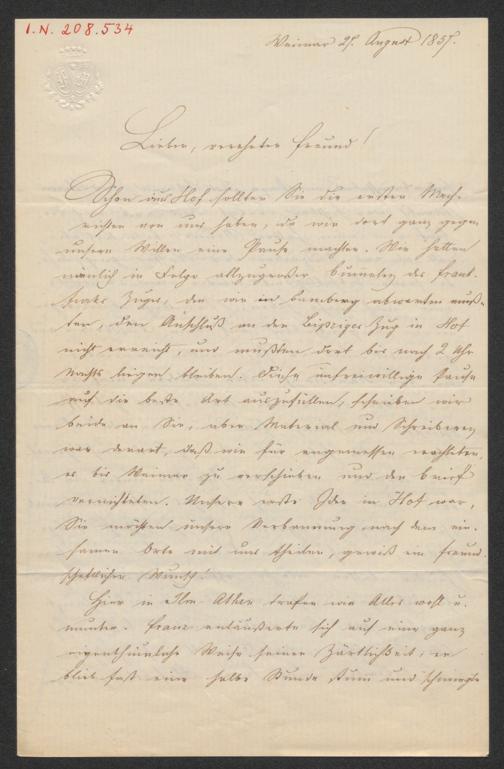 I.N. 208.534
Weimar 27. August 1857.
Lieber, verehrter Freund!
Schon aus Hof sollten Sie die ersten Nach-
richten von uns haben, da wir dort ganz gegen
unsern Willen eine Pause machten. Wir hatten
nämlich in Folge allzugroßer des Frank-
furter Zuges, den wir in Bamberg abwarten muß-
ten, den Anschluß an den Leipziger Zug in Hof
nicht erreicht, und mußten dort bis nach 2 Uhr
Nachts liegen bleiben. Diese unfreiwillige Pause
auf die beste Art auszufüllen, schrieben wir
beide an Sie, aber Material und Schreiberei
war derart, daß wir für angemessen erachteten,
es bis Weimar zu verschieben und den Brief
vernichteten. Unsere erste Idee in Hof war,
Sie möchten unsere Verbannung nach dem ein-
samen Orte mit uns theilen, gewiß ein freund-
schaftlicher Wunsch!
Hier in Ilm Athen trafen wir Alles wohl u.
munter. Franz entäußerte sich auf eine ganz
eigenthümliche Weise seiner Zärtlichkeit, er
blieb fast eine halbe Stunde stumm und schmiegte